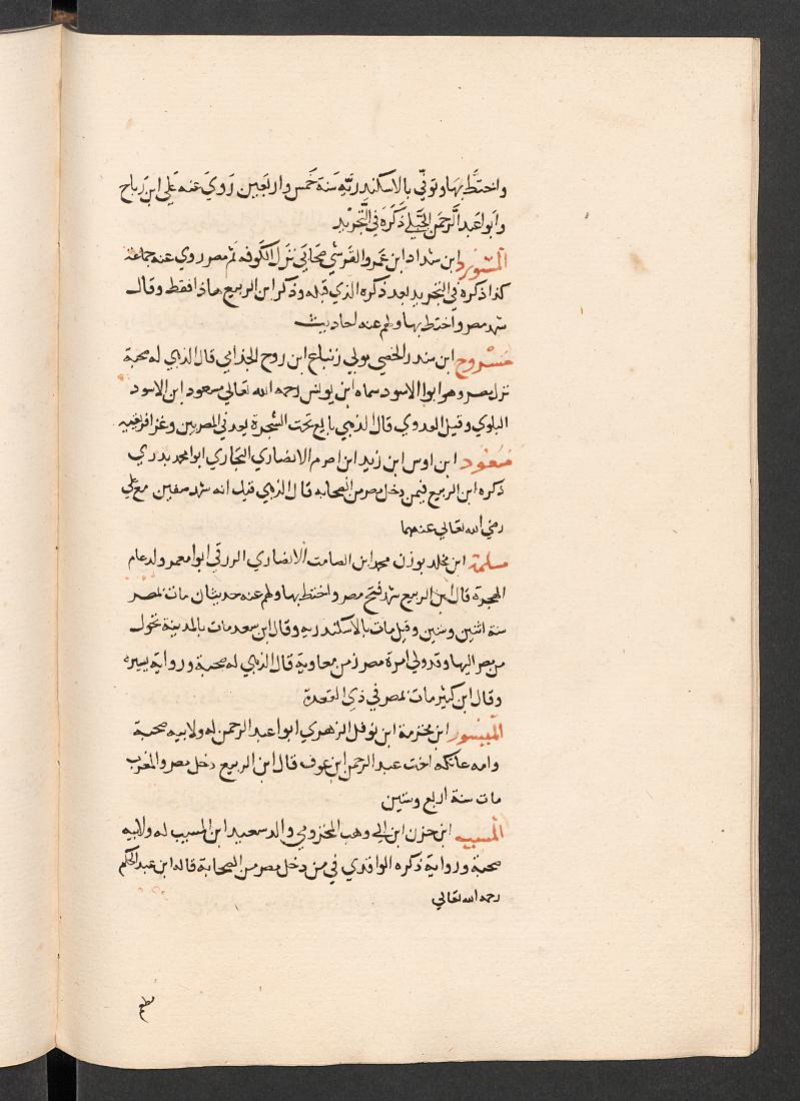 واختطَّ بهَا وتوفّي بالاسكندريَّةِ سَنة خَمس واربَعين رَوي عَنه عَلي ابن رَباح
وابوا عَبد الرَّحمَن الحبَلي ذَكَرَه في التَّجريد
المستورد ابن شداد ابن عَمرو القرَشي صحَابي نزَل الكوفه ثم مصر روي عنه جماعة
كذا ذكره في التجريد بعد ذكره الذي قبله وذكر ابن الربيع هاذا فقط وقال
شهد مصر واختط بها ولهم عنه احاديث
مَسْرُوح ابن سندر الخصي مولي زنباع ابن روح الجذامي قال الذهبي له صحبة
نزل مصر وهو ابوا الاسود سماه ابن يونس رحمه الله تعالي مسعود ابن الاسود
البلوي وقيل العدوي قال الذهبي بايع تحت الشجرة يعد في المصريين وغزا افريقيه
مَسْعُود ابن اوس ابن زيد ابن اصرم الانصاري النجاري ابوا محمد بدري
ذكره ابن الربيع فيمن دخل مصر من الصحابه قال الذهبي قيل انه شهد صفين مع علي
رضي الله تعالي عنهما
مسلمة ابن مخلد بوزن محمد ابن الصامت الانصاري الزرقي ابوا معمر ولد عام
الهجرة قال ابن الربيع شهد فتح مصر واختط بها ولهم عنه حديثان مات بمصر
سنة اثنين وستين وقيل مات بالاسكندريه وقال ابن سعد مات بالمدينة تحول
من مصر اليها وقد ولي امرة مصر زمن معاوية قال الذهبي له صحبة ورواية يسيره
وقال ابن كثير مات بمصر في ذي القعدة
المِسْوَر ابن مخرمة ابن نوفل الزهري ابوا عبد الرحمن له ولابيه صحبة
وامه عاتكه اخت عبد الرحمن ابن عوف قال ابن الربيع دخل مصر والمغرب
مات سنة اربع وستين
المسيب ابن حزن ابن ابي وهب المخزومي والد سعيد ابن المسيب له ولابيه
صحبة ورواية ذكره الواقدي في من دخل مصر من الصحابة قاله ابن عبد الحكم
رحمه الله تعالي
مطعم